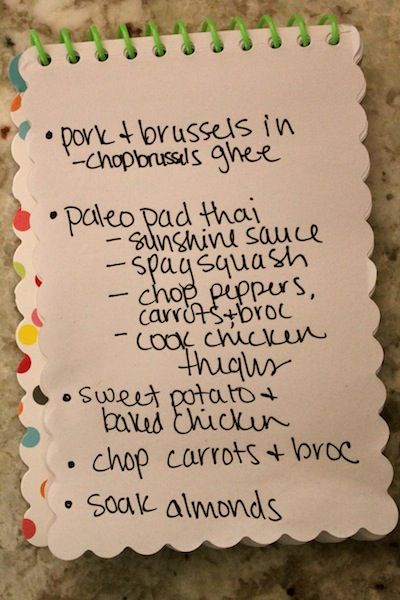 • pork + brussels in
- chop brussels ghee
• paleo pad thai
- sunshine sauce
- spag squash
- chop peppers,
carrots + broc
- cook chicken
thighs
• sweet potato +
baked chicken
• chop carrots + broc
• soak almonds